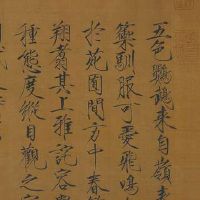 五色鸚鵡來自嶺表
籞馴服可愛飛鳴
於苑囿間方中春繁
翔翥其上雅詫容與
種態度縱目觀之宛